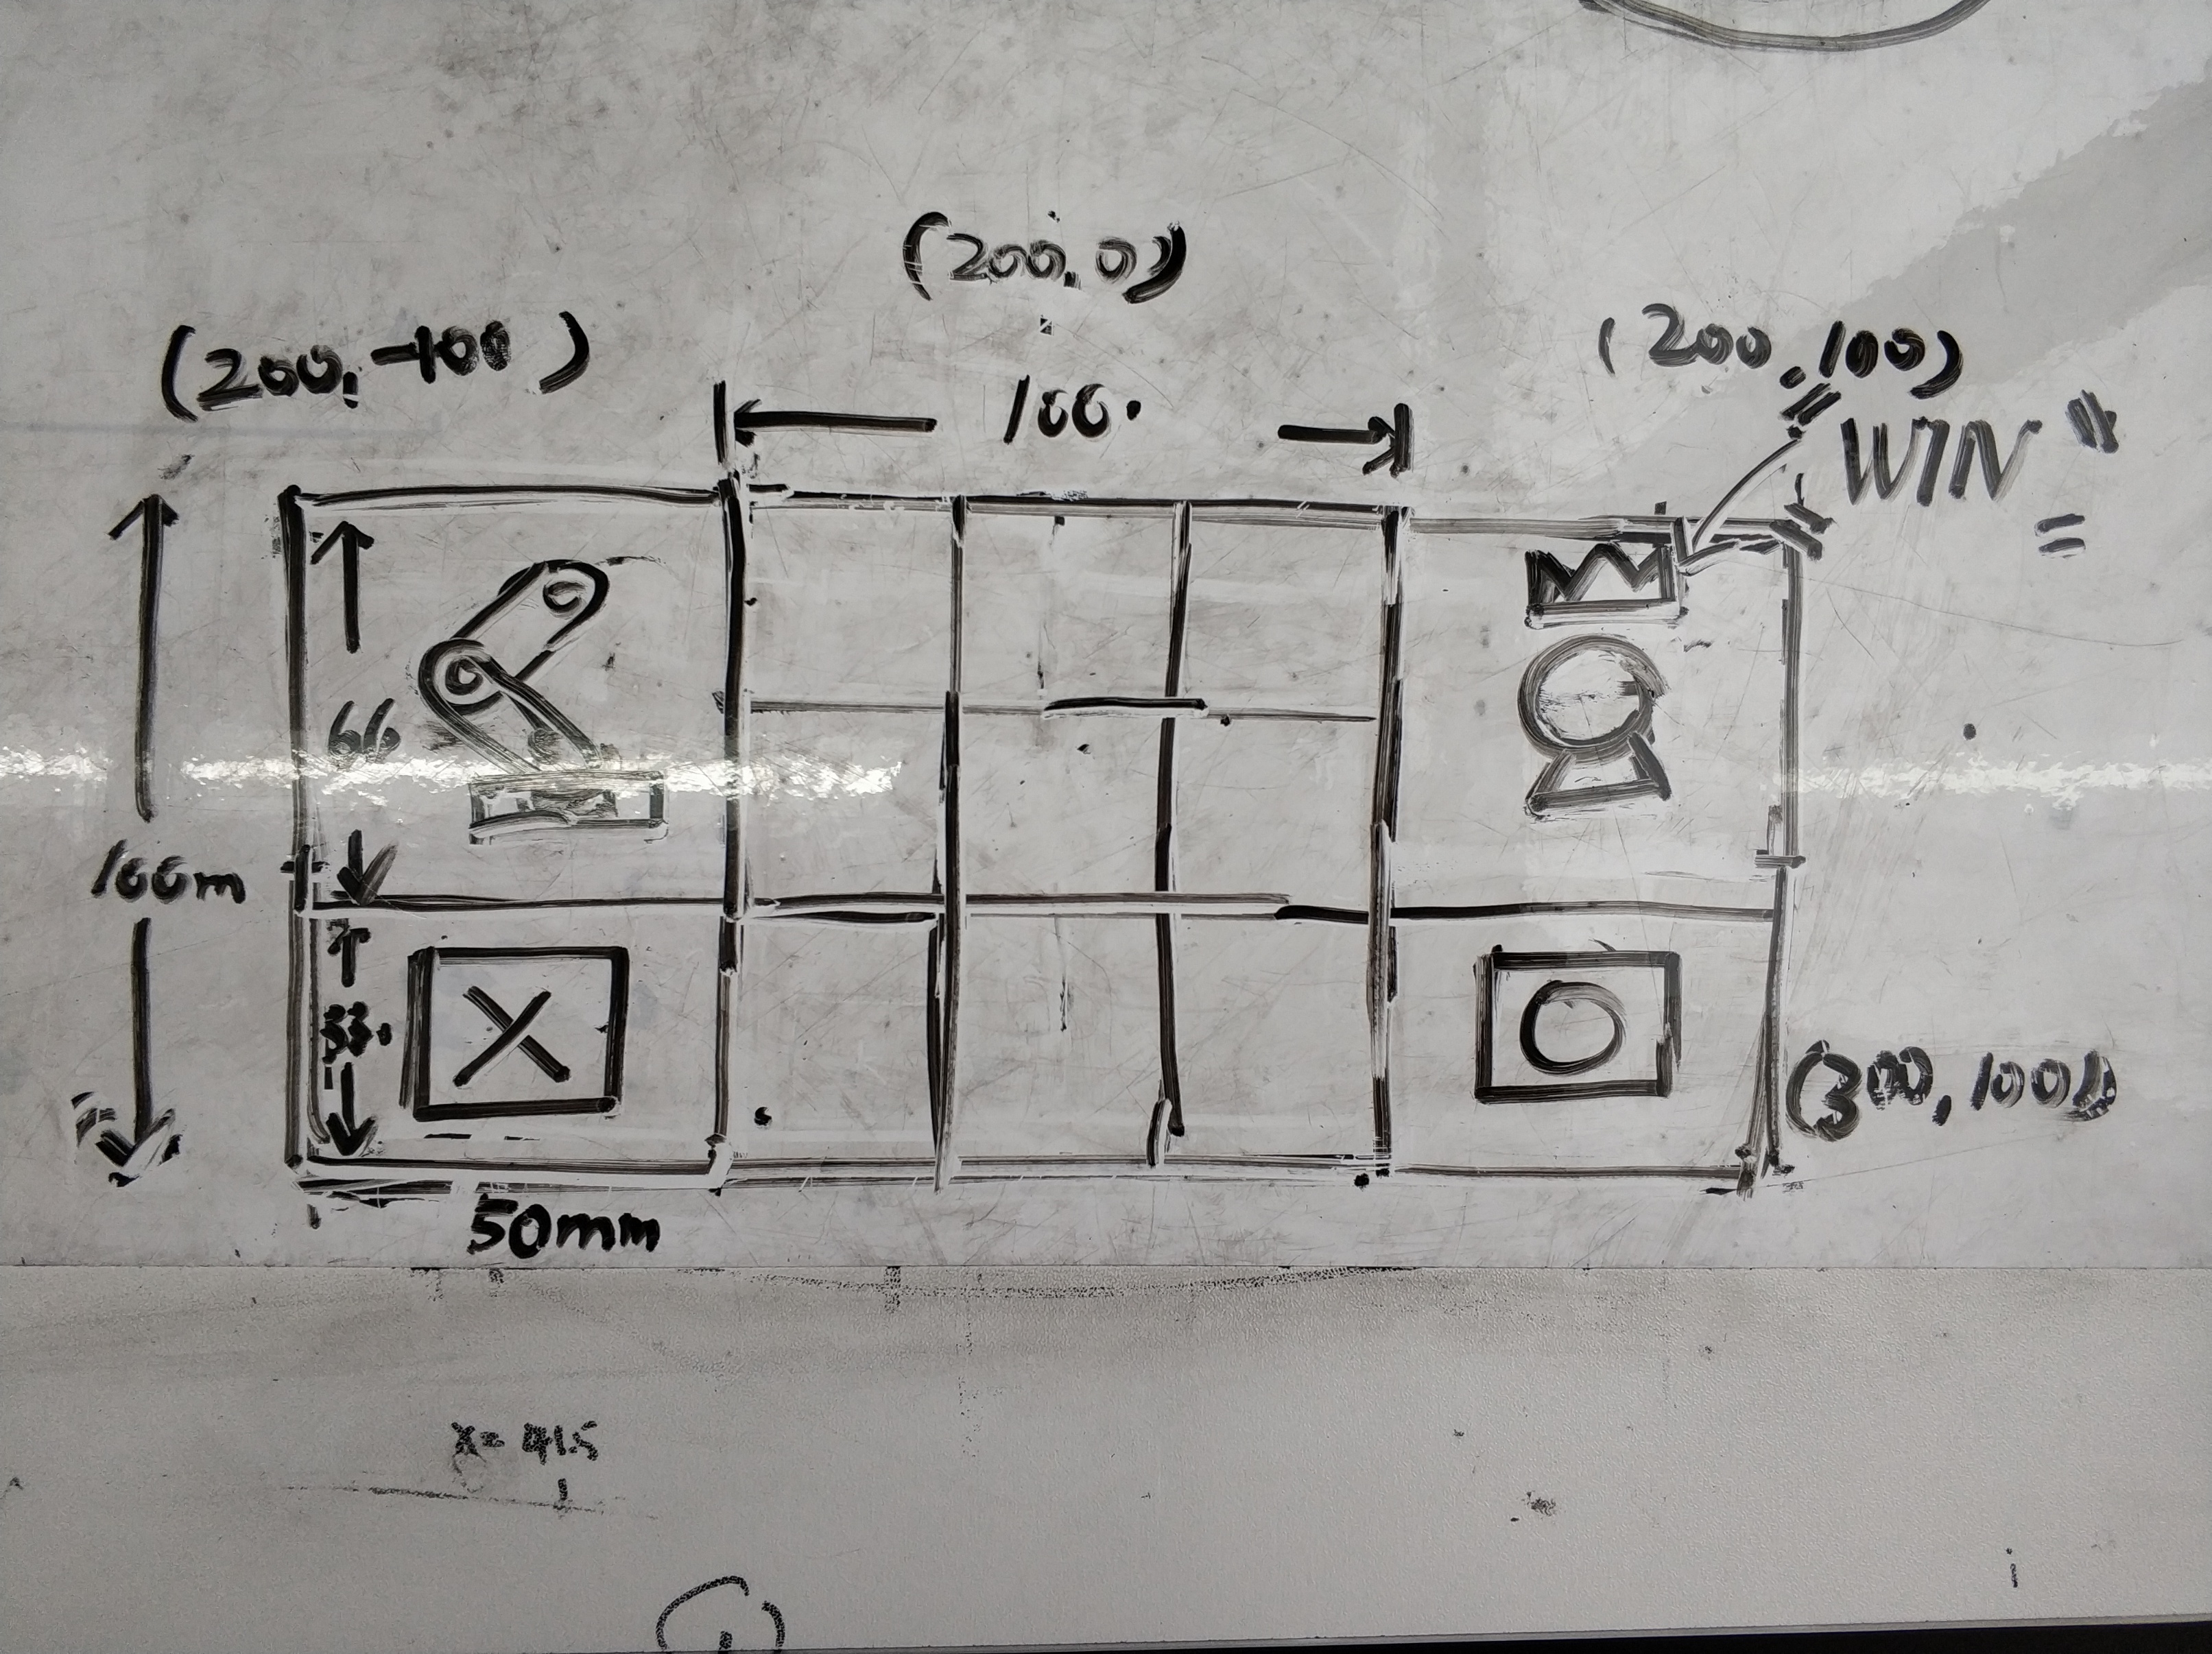 (200,0)
(200,-100)
(200,100)
100.
"WIN"
66
100m
33.
X
O
(300,100)
50mm
x=41.5